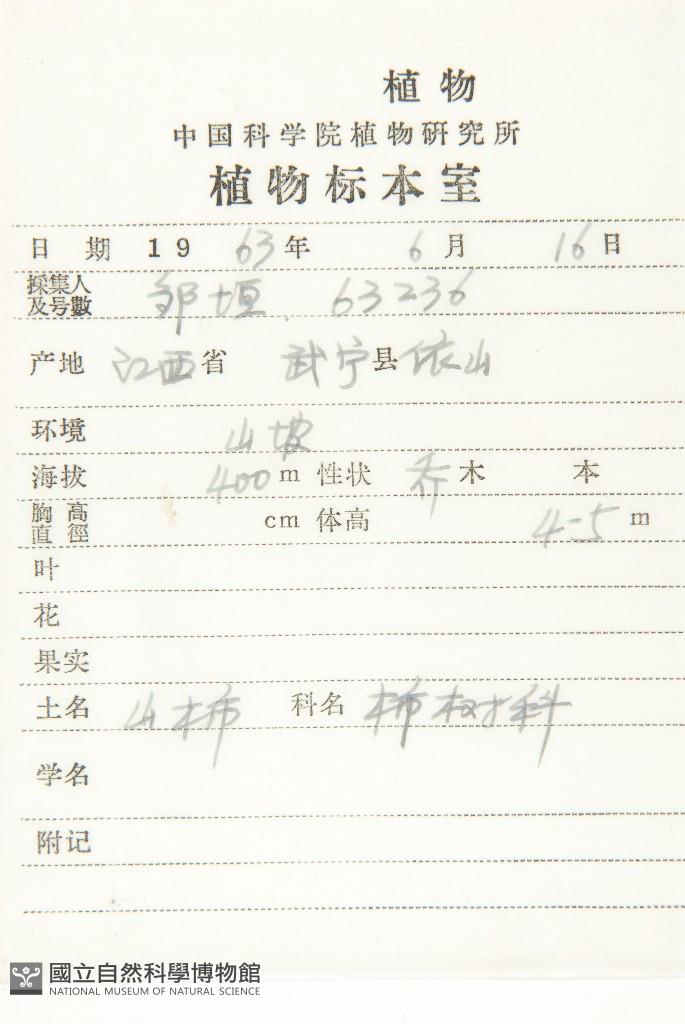 植物
中国科学院植物研究所
植物标本室
日 期 19 63 年 6 月 16 日
採集人及号數 邹垣 63236
产地 江西 省 武宁 县 依山
环境 山坡
海拔 400 m 性状 乔 木 本
胸高直徑 cm 体高 4-5 m
叶
花
果实
土名 山柿 科名 柿树科
学名
附记
國立自然科學博物館
NATIONAL MUSEUM OF NATURAL SCIENCE